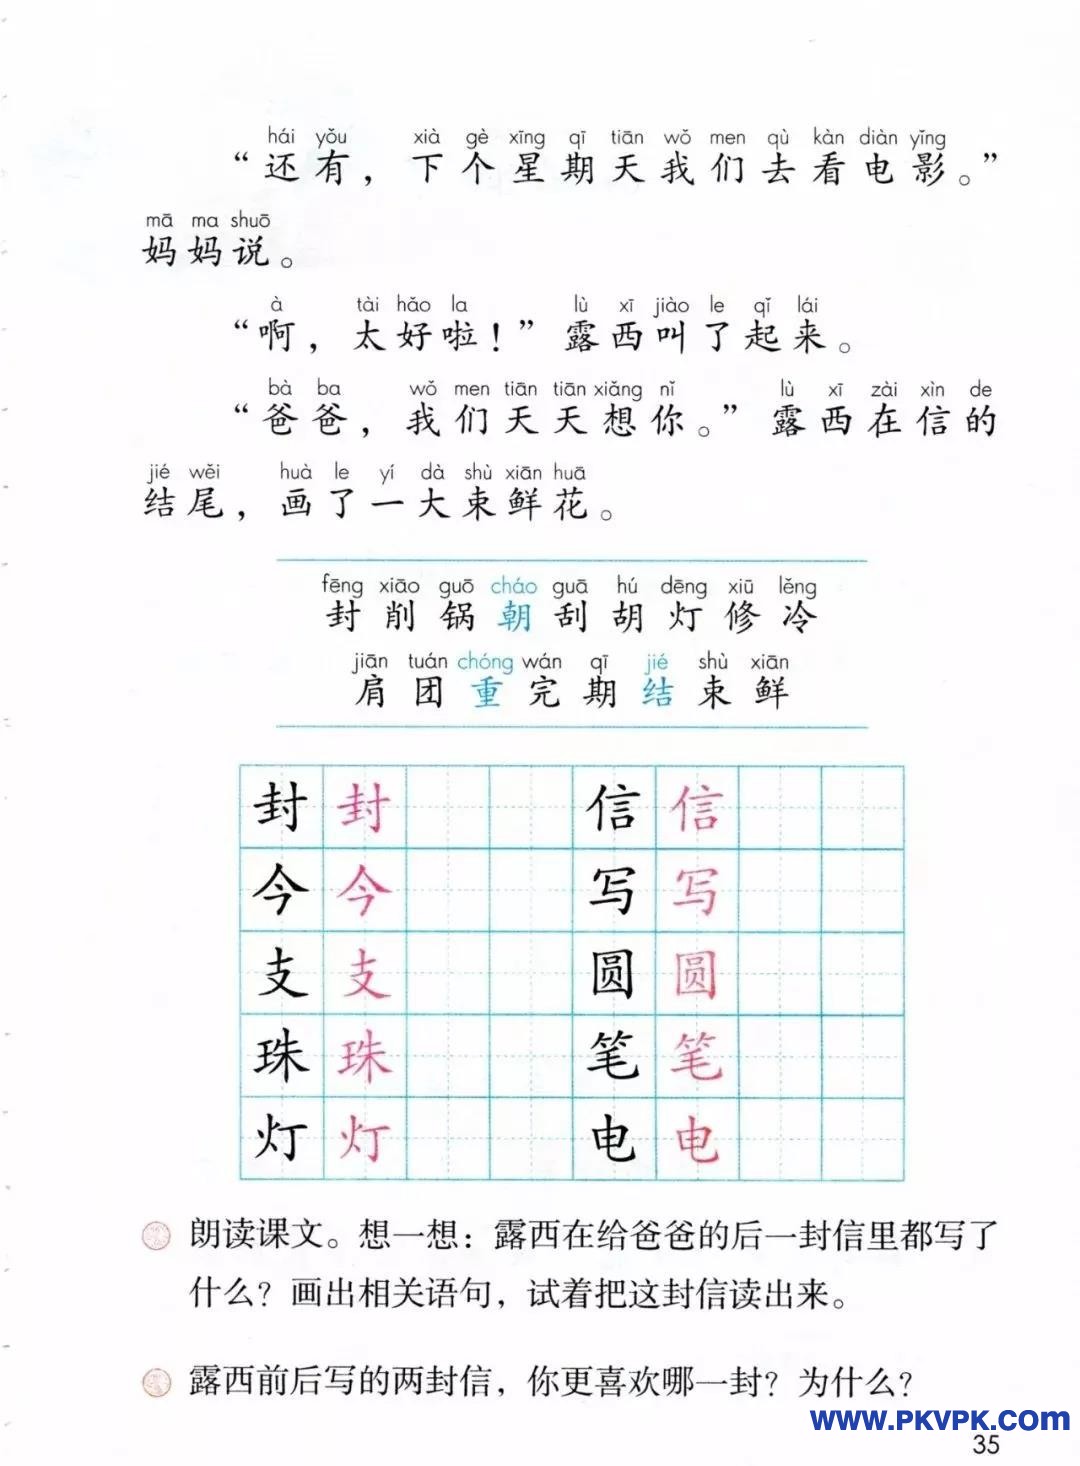 hái yǒu xià gè xīng qī tiān wǒ men qù kàn diàn yǐng
“还有，下个星期天我们去看电影。”
mā ma shuō
妈妈说。
à tài hǎo la lù xī jiào le qǐ lái
“啊，太好啦！”露西叫了起来。
bà ba wǒ men tiān tiān xiǎng nǐ lù xī zài xìn de
“爸爸，我们天天想你。”露西在信的
jié wěi huà le yí dà shù xiān huā
结尾，画了一大束鲜花。
fēng xiāo guō cháo guā hú dēng xiū lěng
封 削 锅 朝 刮 胡 灯 修 冷
jiān tuán chóng wán qī jié shù xiān
肩 团 重 完 期 结 束 鲜
封 封 信 信
今 今 写 写
支 支 圆 圆
珠 珠 笔 笔
灯 灯 电 电
朗读课文。想一想：露西在给爸爸的后一封信里都写了
什么？画出相关语句，试着把这封信读出来。
露西前后写的两封信，你更喜欢哪一封？为什么？
www.PKVPK.com
35